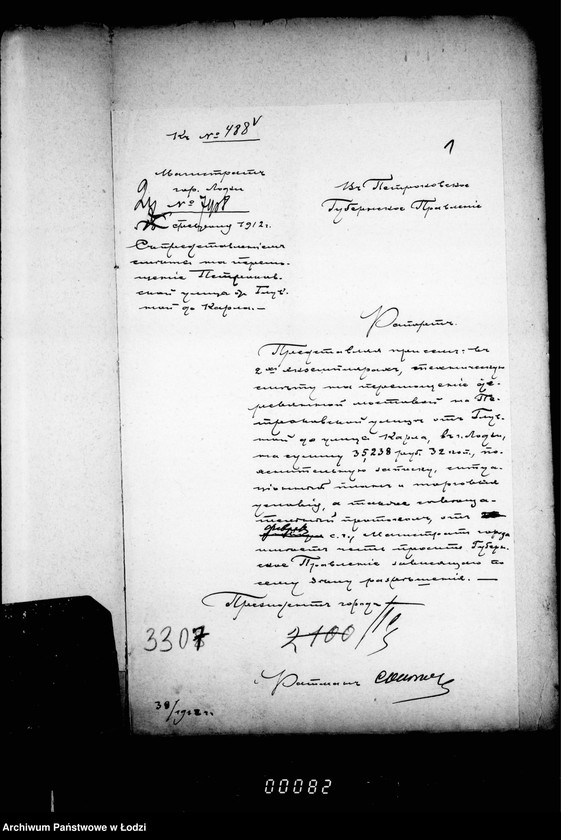 Къ № 488
1
Магистратъ
гор. Лодзи
№ 7908
февраля 1912 г.
Съ представленіемъ
смѣты на перемо-
щеніе Петроков-
ской улицы отъ Глув-
ной до Карла. —
Въ Петроковское
Губернское Правленіе
Рапортъ.
Представляя при семъ: въ
2хъ экземплярахъ, техническую
смѣту на перемощеніе де-
ревянной мостовой по Пе-
троковской улицѣ отъ Глув-
ной до улицы Карла, въ г. Лодзи,
на сумму 35,238 руб. 32 коп., по-
яснительную записку, ситуа-
ціонный планъ и торговыя
условія, а также совѣща-
тельный протоколъ, отъ
с. г., Магистратъ города
имѣетъ честь просить Губерн-
ское Правленіе зависящаго по
сему дѣлу разрѣшенія. —
Президентъ города
3307
2100
Ратманъ
38/1912 г.
00082
Archiwum Państwowe w Łodzi